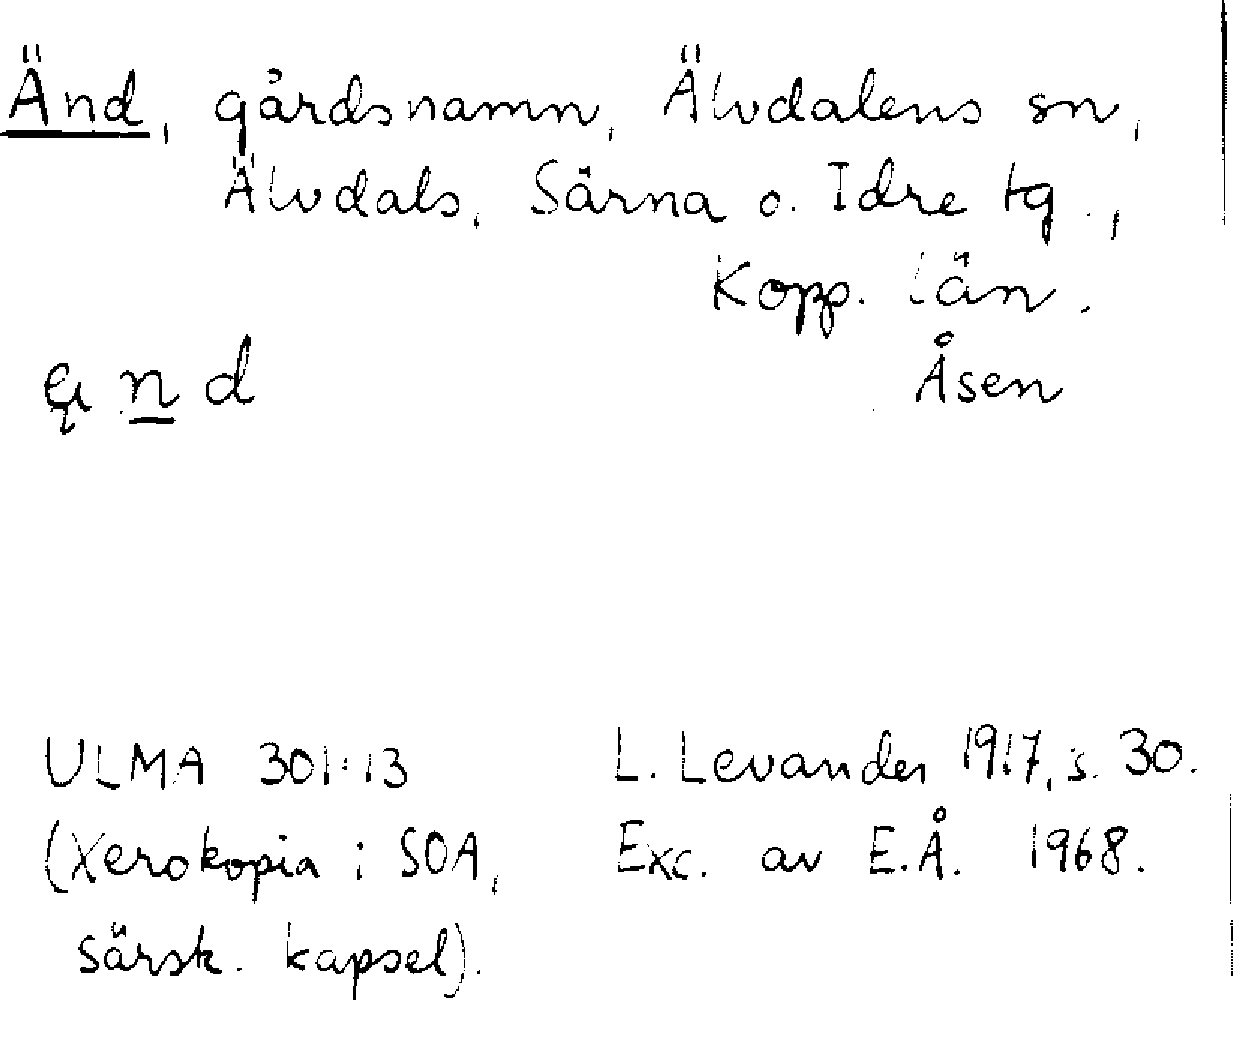 Änd, gårdsnamn, Älvdalens sn,
Älvdals, Särna o. Idre tg.,
Kopp. län.
Åsen
n d
ULMA 301:13
(Xerokopia i SOA,
särsk. kapsel).
L. Levander 1917, s. 30.
Exc. av E.Å. 1968.